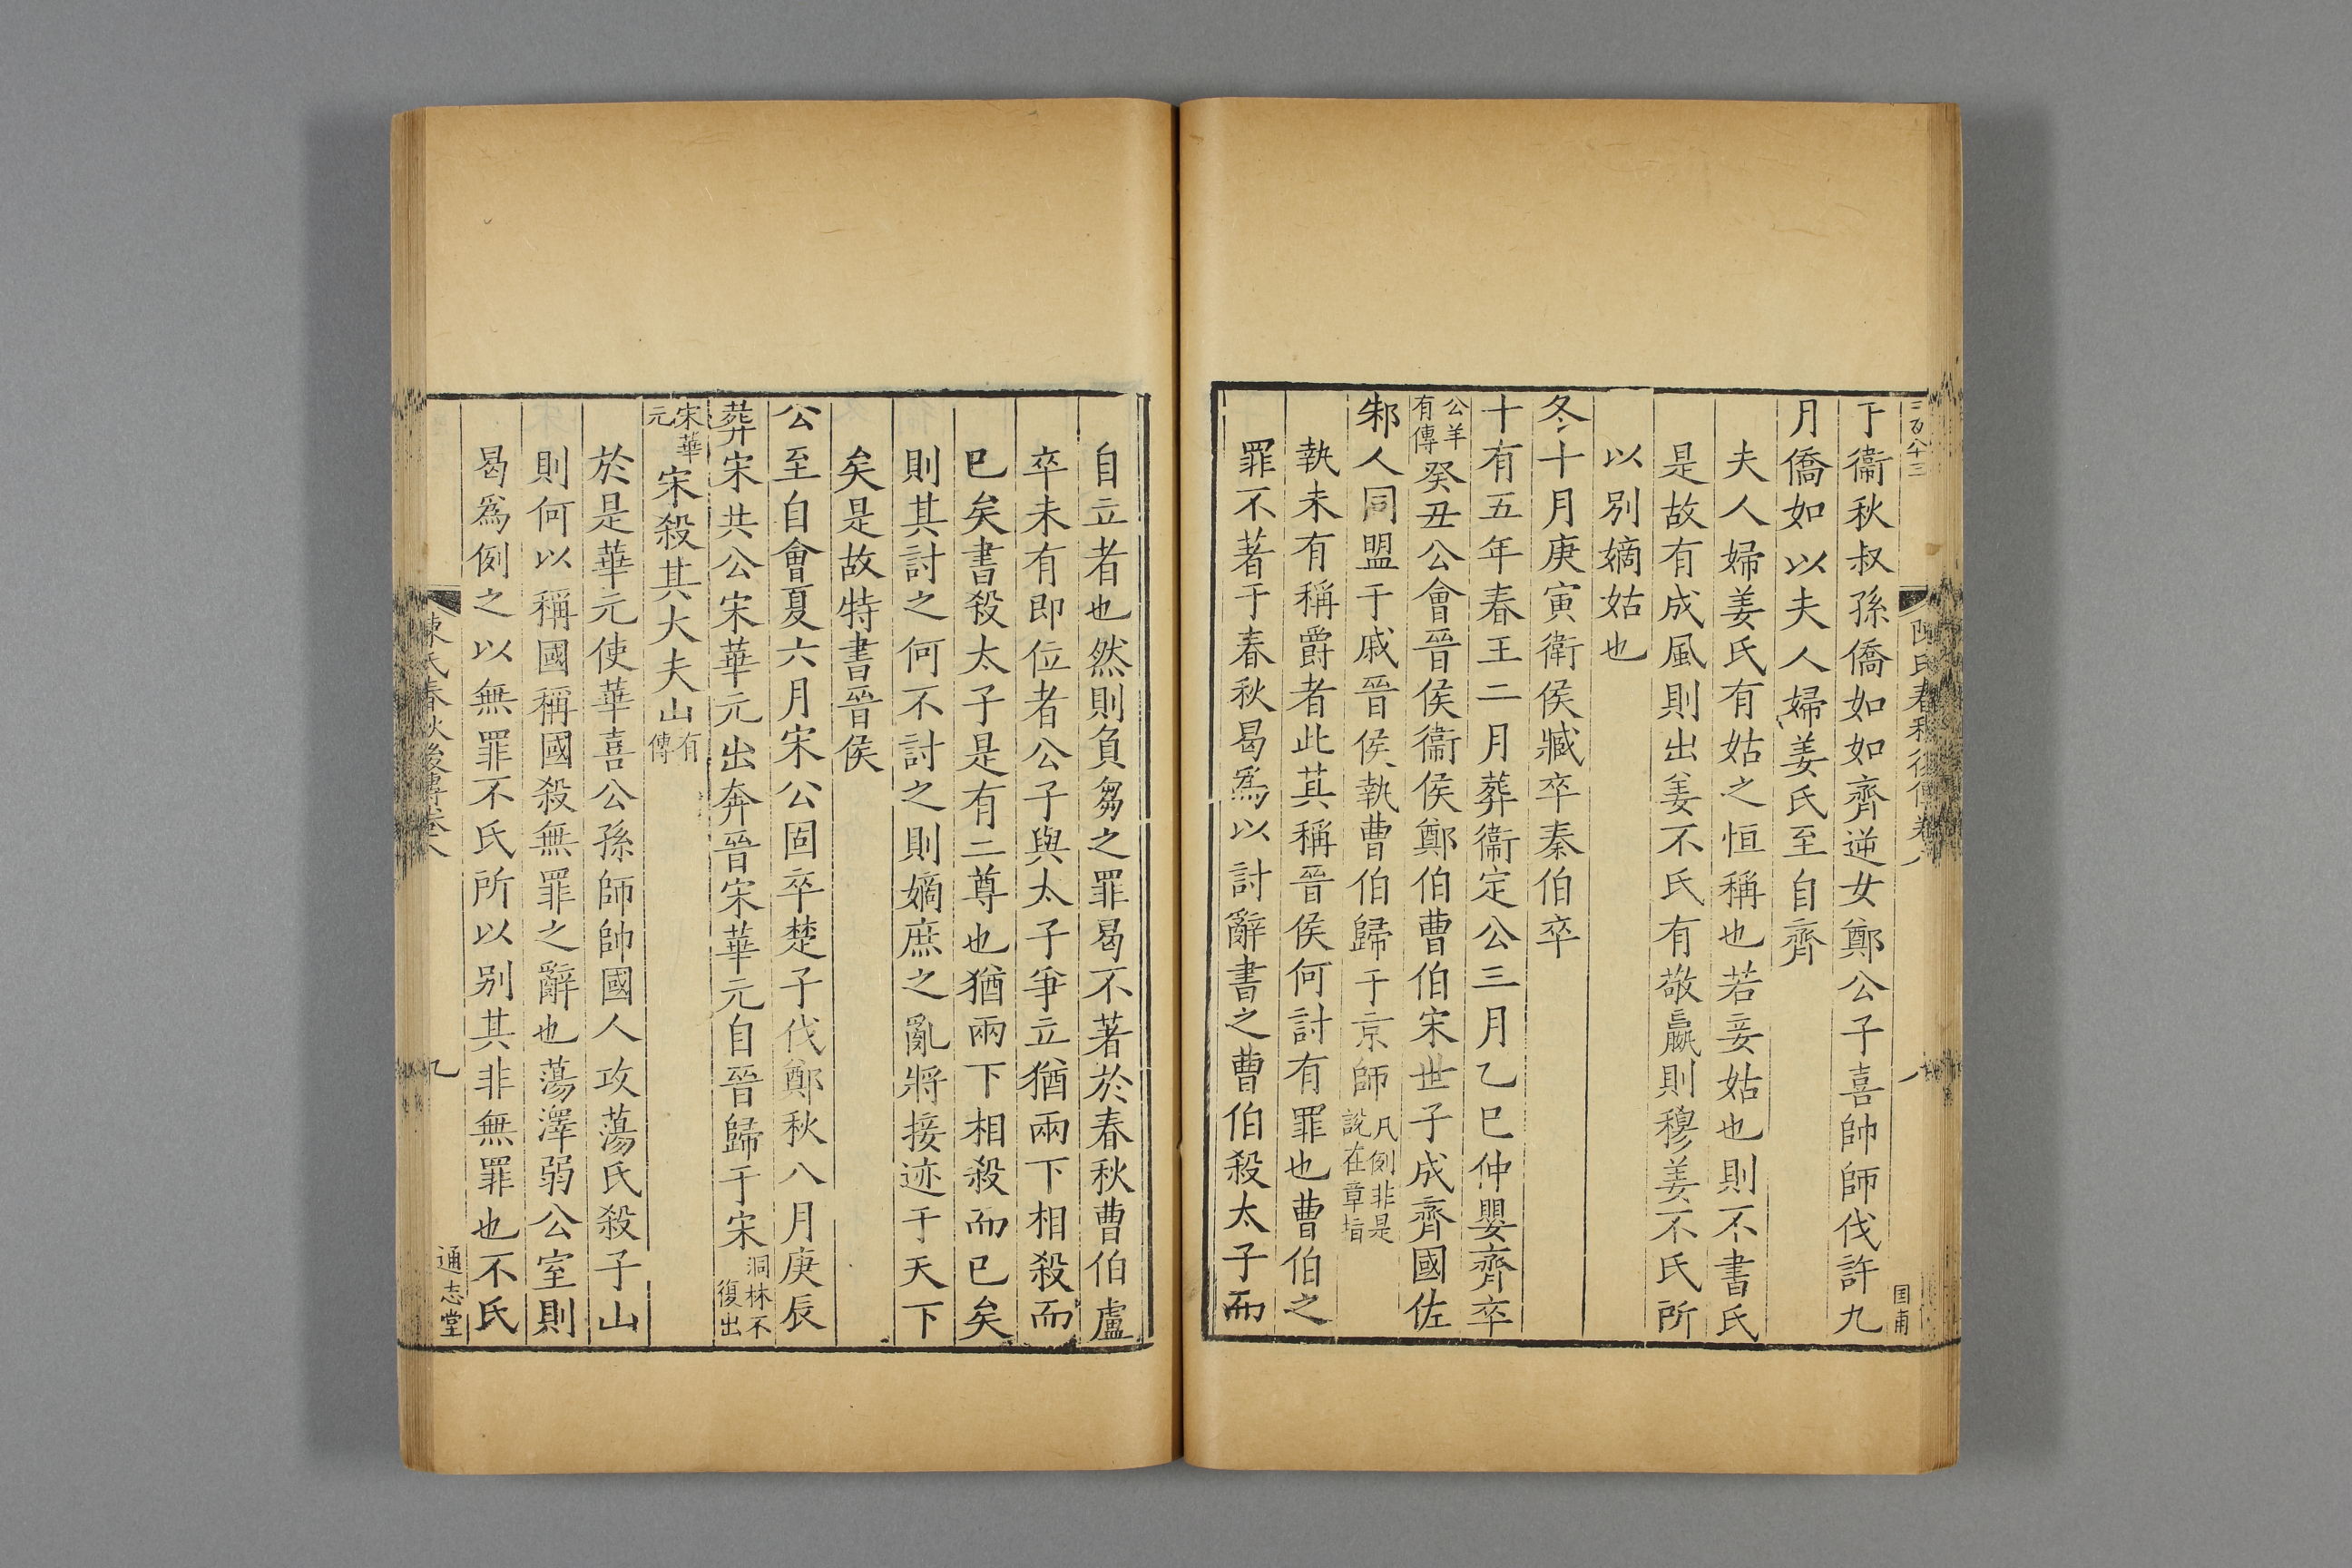 三百八十三
陳氏春秋後傳卷八
八
国甫
于衞秋叔孫僑如如齊逆女鄭公子喜帥師伐許九
月僑如以夫人婦姜氏至自齊
夫人婦姜氏有姑之恒稱也若妾姑也則不書氏
是故有成風則出姜不氏有敬嬴則穆姜不氏所
以別嫡姑也
冬十月庚寅衛侯臧卒秦伯卒
十有五年春王二月葬衞定公三月乙巳仲嬰齊卒
公羊有傳癸丑公會晉侯衞侯鄭伯曹伯宋世子成齊國佐
邾人同盟于戚晉侯執曹伯歸于京師凡例非是說在章㫖
執未有稱爵者此其稱晉侯何討有罪也曹伯之
罪不著于春秋曷爲以討辭書之曹伯殺太子而
自立者也然則負芻之罪曷不著於春秋曹伯盧
卒未有即位者公子與太子爭立猶兩下相殺而
巳矣書殺太子是有二尊也猶兩下相殺而已矣
則其討之何不討之則嫡庶之亂將接迹于天下
矣是故特書晉侯
公至自會夏六月宋公固卒楚子伐鄭秋八月庚辰
葬宋共公宋華元出奔晉宋華元自晉歸于宋洞林不復出
宋華元宋殺其大夫山有傳
於是華元使華喜公孫師帥國人攻蕩氏殺子山
則何以稱國稱國殺無罪之辭也蕩澤弱公室則
曷爲例之以無罪不氏所以别其非無罪也不氏
陳氏春秋後傳卷八
九
通志堂